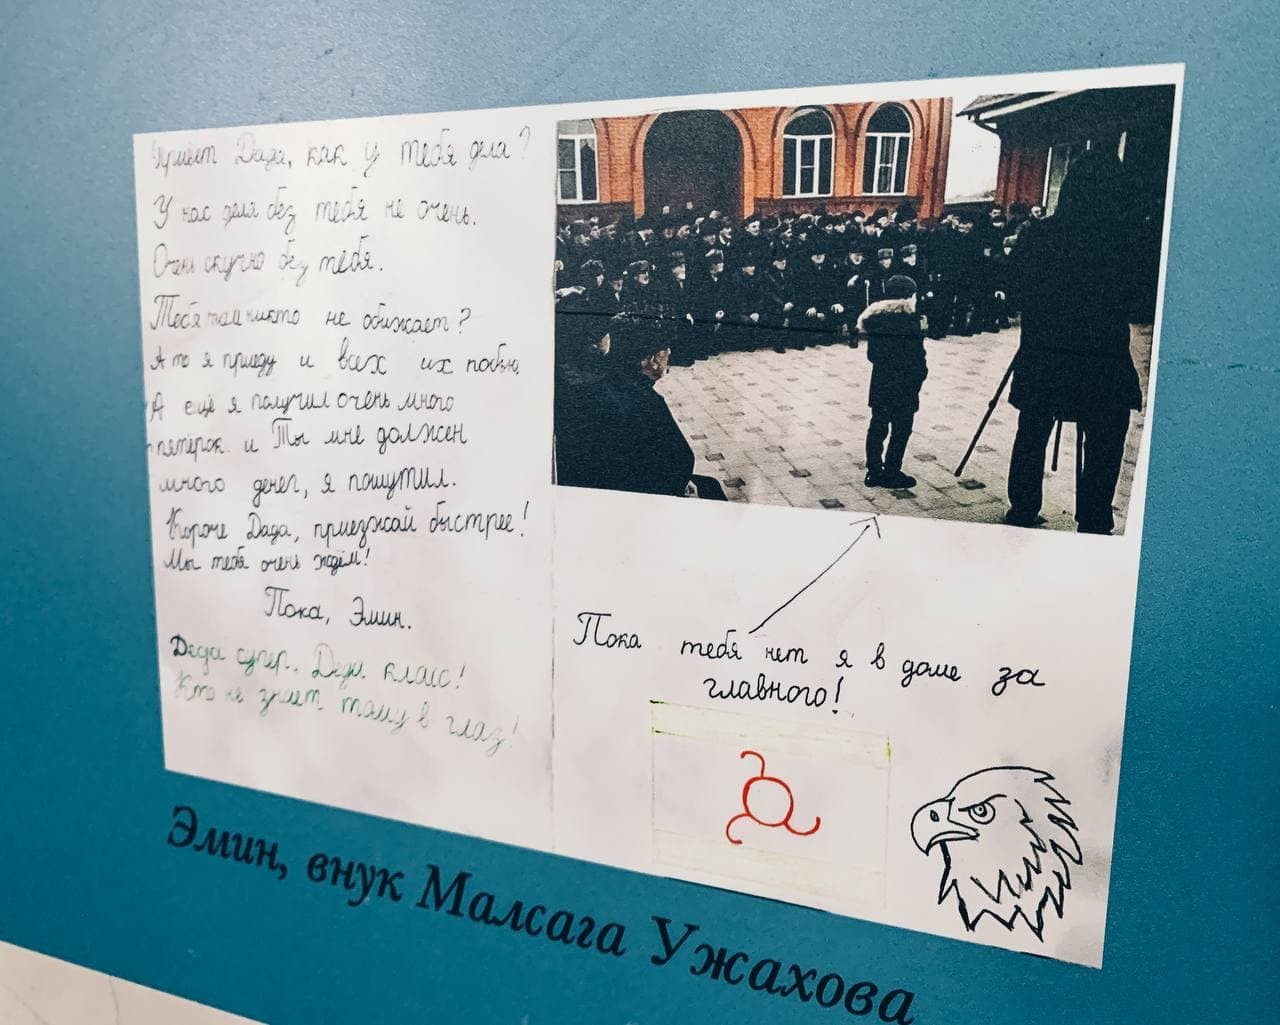 Привет Дада, как у тебя дела?
У нас дела без тебя не очень.
Очень скучно без тебя.
Тебя там никто не обижает?
А то я приеду и всех их побью.
А ещё я получил очень много
пятёрок и Ты мне должен
много денег, я пошутил.
Короче Дада, приезжай быстрее!
Мы тебя очень ждём!
Пока, Эмин.
Деда супер. Деда класс!
Кто не знает тому в глаз!
Пока тебя нет я в доме за
главного!
Эмин, внук Малсага Ужахова